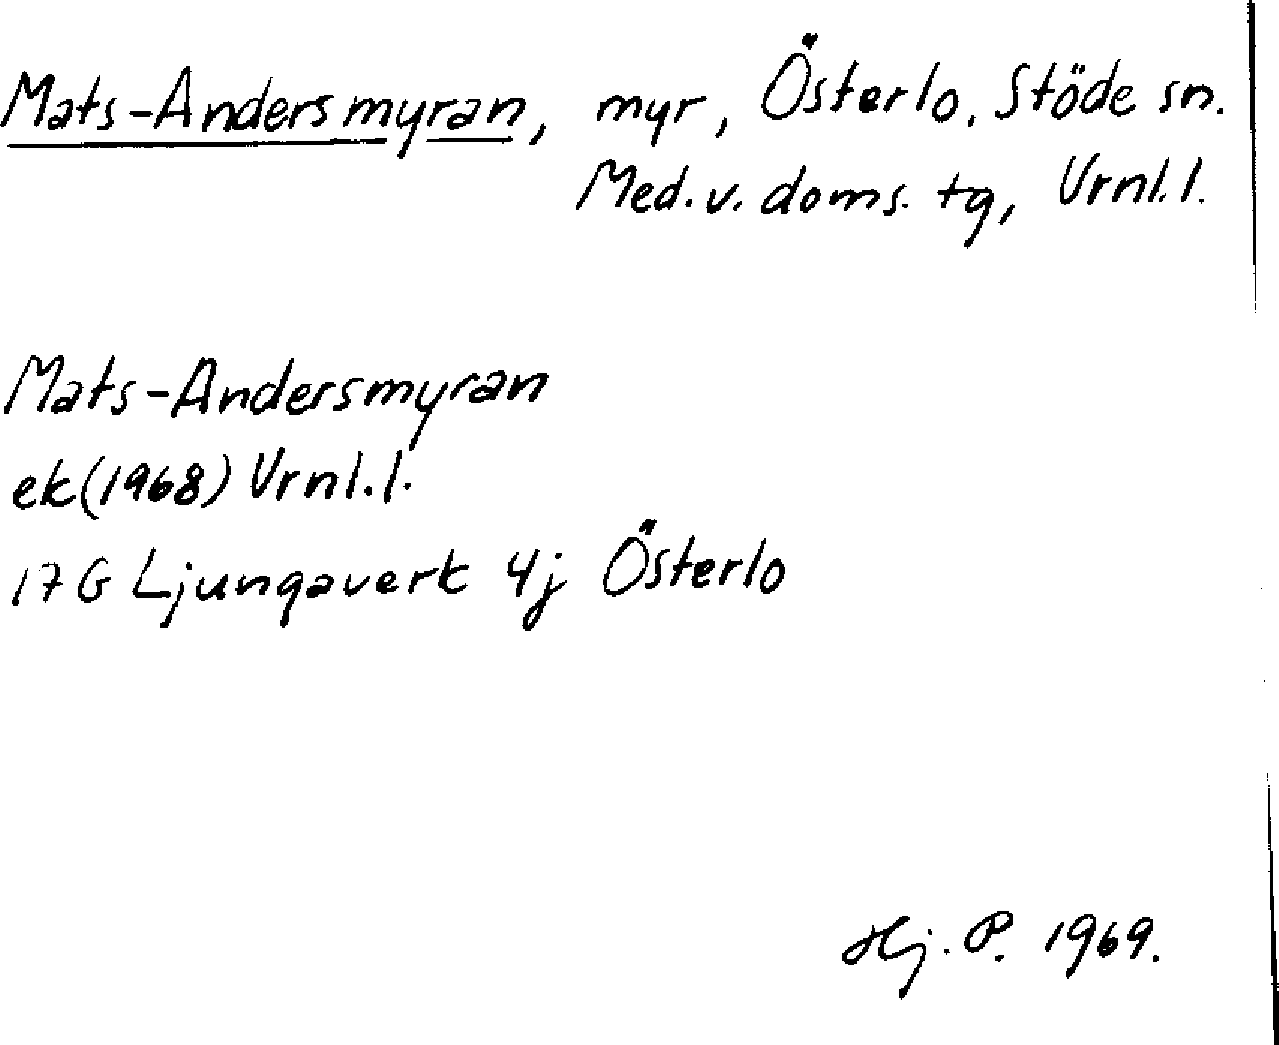 Mats-Andersmyran, myr, Österlo, Stöde sn.
Med. v. doms. tg, Vrnl. l.
Mats-Andersmyran
ek (1968) Vrnl. l.
17G Ljungaverk 4j Österlo
Hj. P. 1969.